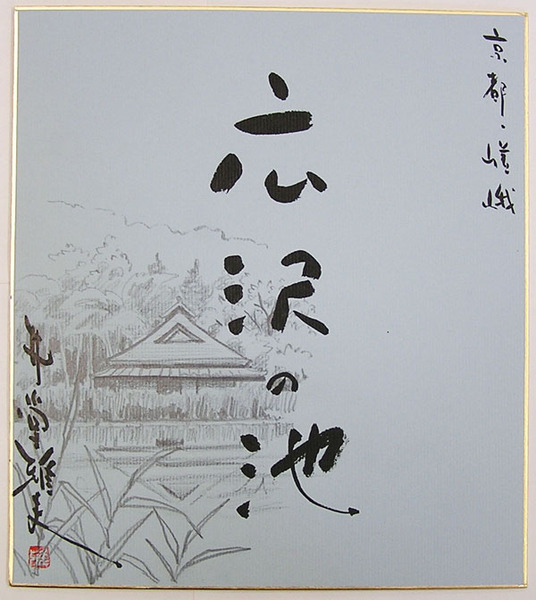 京都・嵯峨
広沢の池